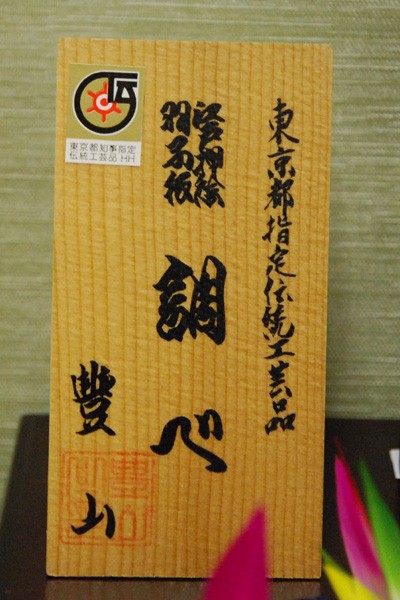 東京都指定伝統工芸品
江戸押絵
羽子板
調べ
豊山
伝
東京都知事指定
伝統工芸品 HH